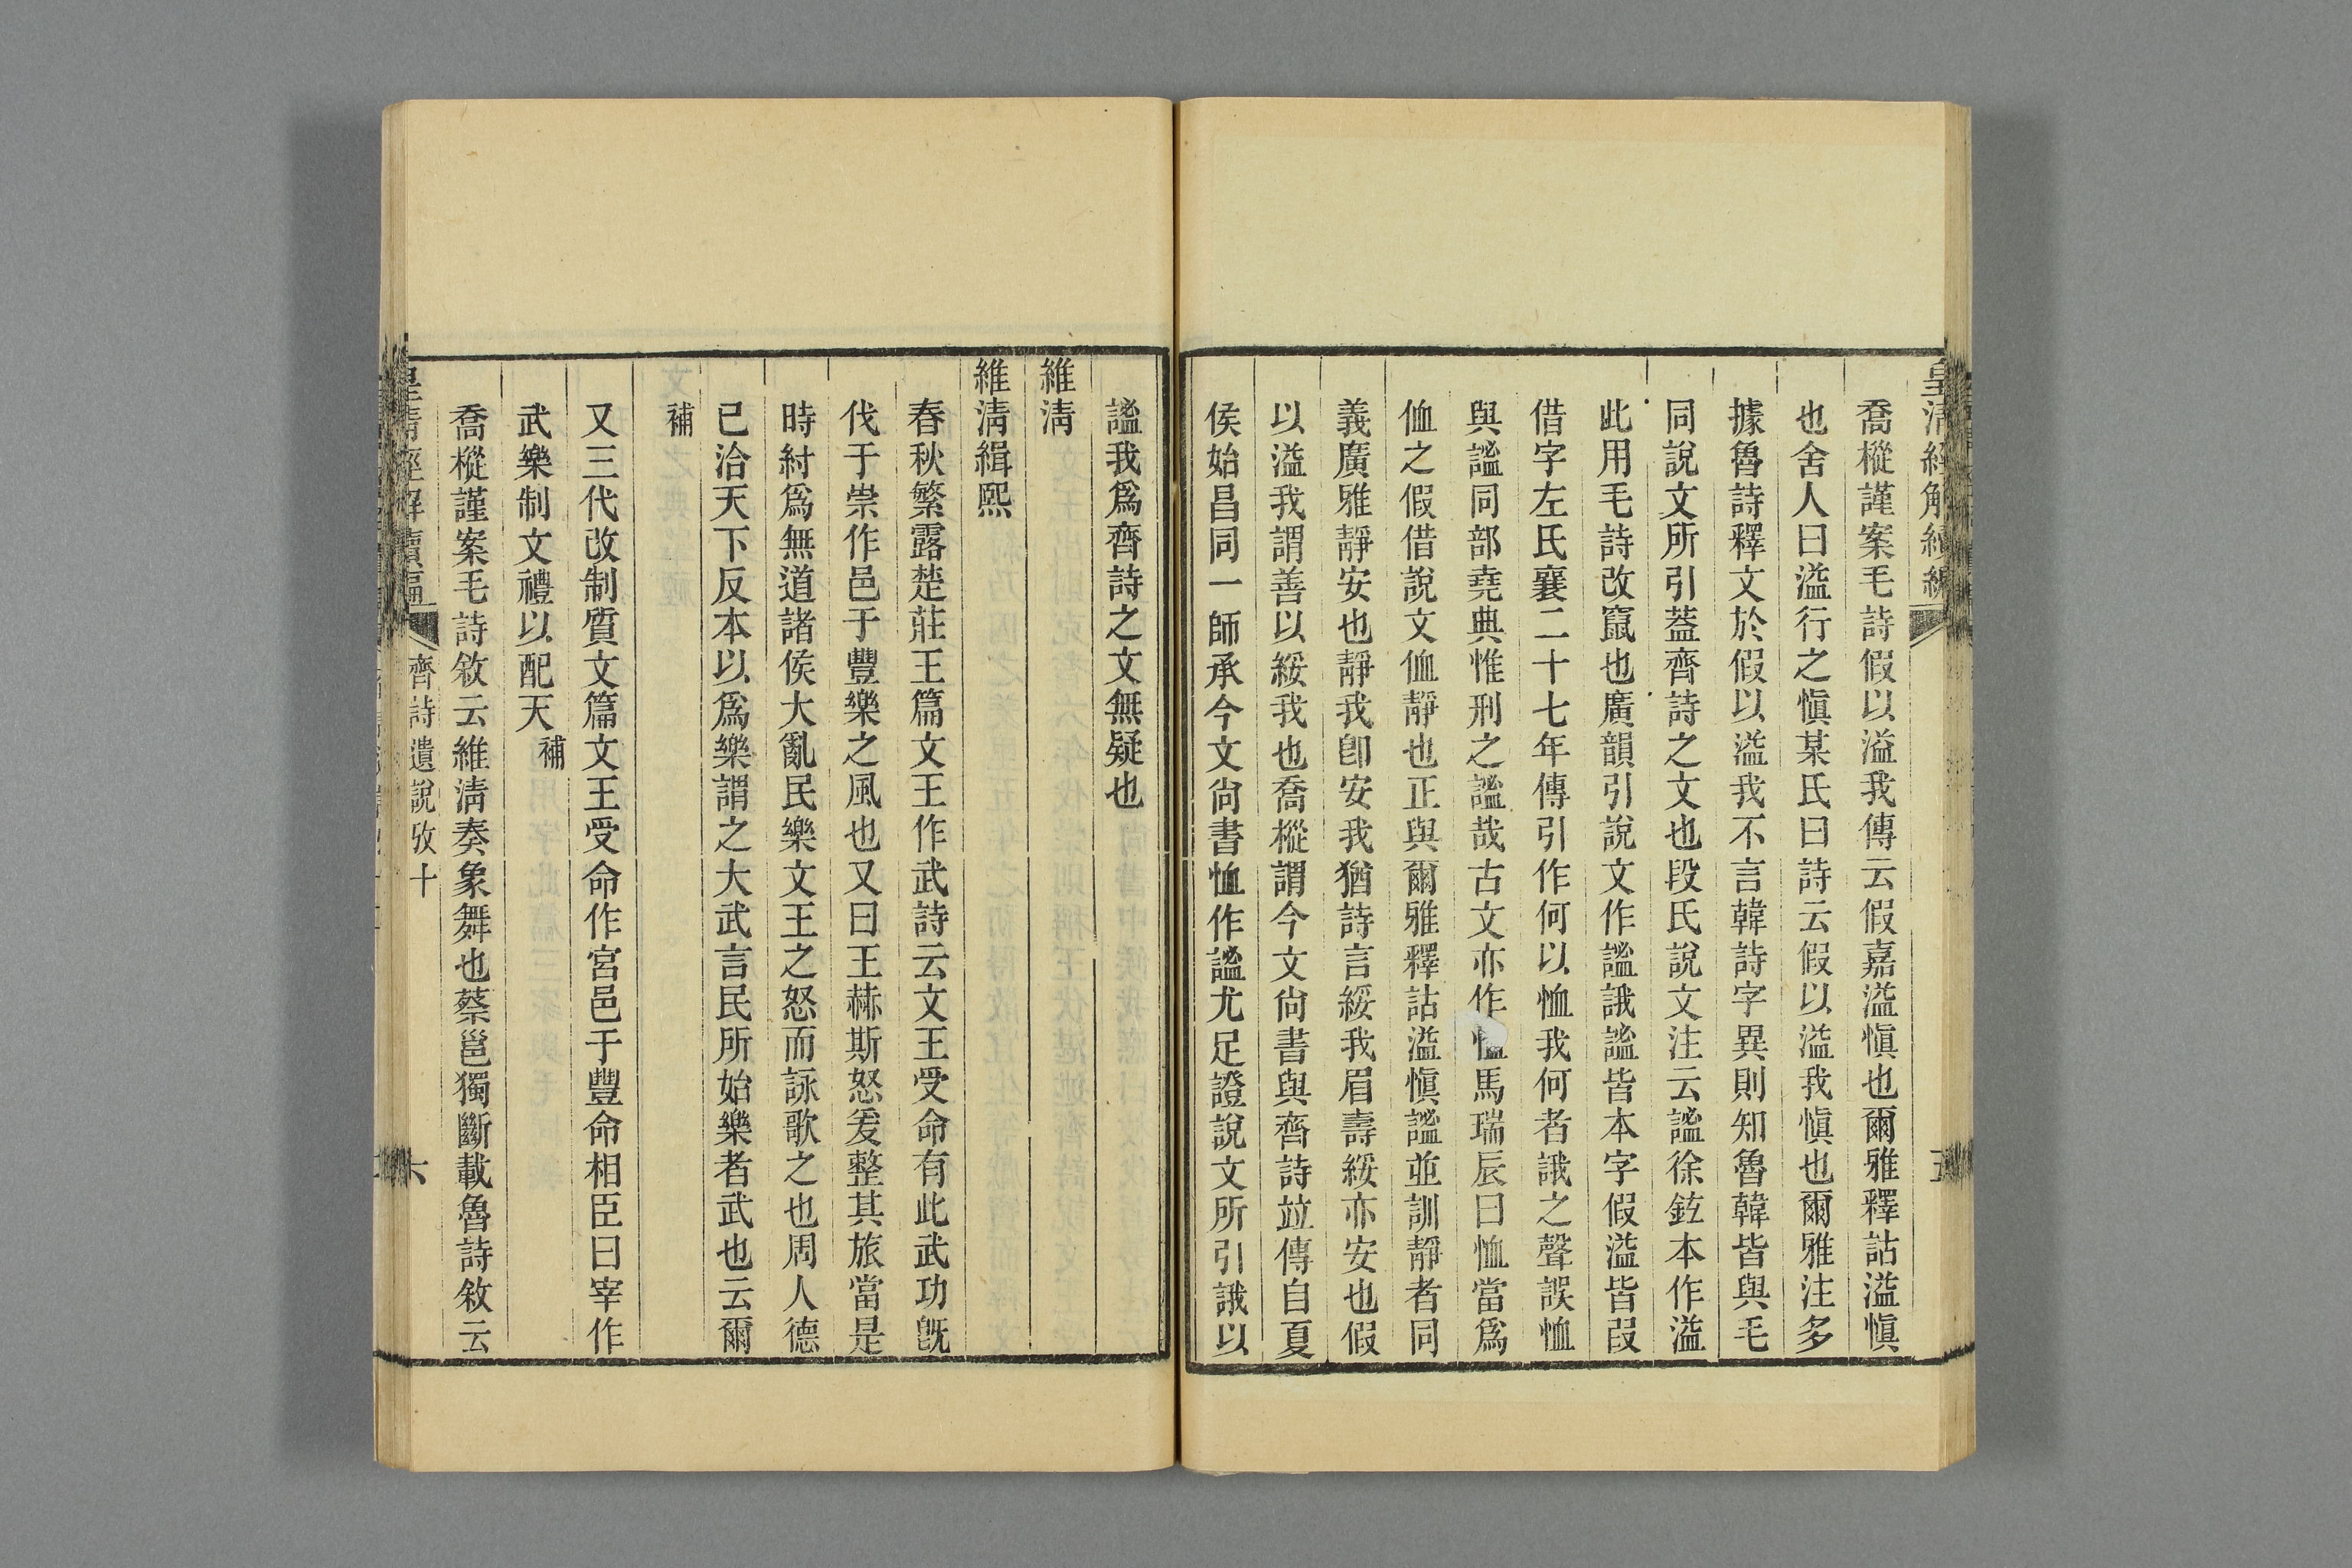 皇清經解續編
喬樅謹案毛詩假以溢我傳云假嘉溢愼也爾雅釋詁溢愼
也舍人曰溢行之愼某氏曰詩云假以溢我愼也爾雅注多
據魯詩釋文於假以溢我不言韓詩字異則知魯韓皆與毛
同說文所引蓋齊詩之文也段氏說文注云謐徐鉉本作溢
此用毛詩改竄也廣韻引說文作謐誐謐皆本字假溢皆叚
借字左氏襄二十七年傳引作何以恤我何者誐之聲誤恤
與謐同部堯典惟刑之謐哉古文亦作恤馬瑞辰曰恤當爲
侐之假借說文侐靜也正與爾雅釋詁溢愼謐並訓靜者同
義廣雅靜安也靜我卽安我猶詩言綏我眉壽綏亦安也假
以溢我謂善以綏我也喬樅謂今文尙書與齊詩竝傳自夏
侯始昌同一師承今文尙書恤作謐尤足證說文所引誐以
謐我爲齊詩之文無疑也
維淸
維淸緝熙
春秋繁露楚莊王篇文王作武詩云文王受命有此武功旣
伐于崇作邑于豐樂之風也又曰王赫斯怒爰整其旅當是
時紂爲無道諸侯大亂民樂文王之怒而詠歌之也周人德
已洽天下反本以爲樂謂之大武言民所始樂者武也云爾
補
又三代改制質文篇文王受命作宮邑于豐命相臣曰宰作
武樂制文禮以配天補
喬樅謹案毛詩敘云維淸奏象舞也蔡邕獨斷載魯詩敘云
皇清經解續編 齊詩遺說攷十 六